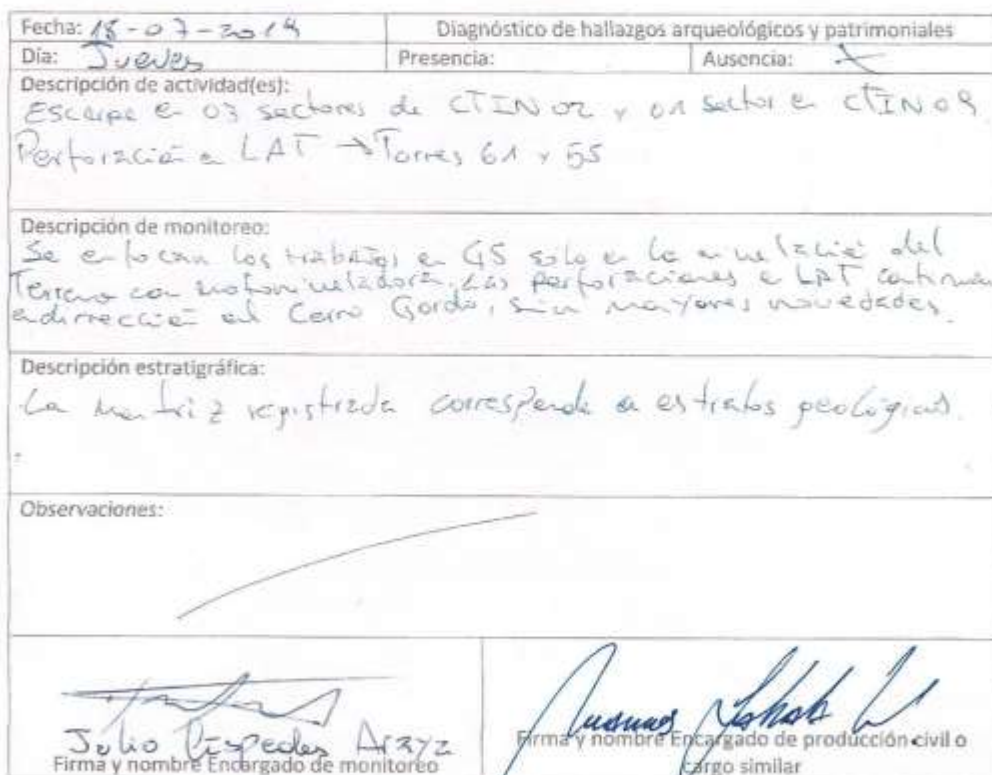 Fecha: 18-07-2019 Diagnóstico de hallazgos arqueológicos y patrimoniales
Día: Jueves Presencia: Ausencia: X
Descripción de actividad(es):
Escarpe en 03 sectores de CTIN02 y 01 sector en CTIN09
Perforación en LAT → Torres 61 y 55
Descripción de monitoreo:
Se enfocan los trabajos en GS solo en la nivelación del
Terreno con motoniveladora, Las perforaciones en LAT continuan
en dirección al Cerro Gordo, sin mayores novedades.
Descripción estratigráfica:
La matriz registrada corresponde a estratos geológicos.
Observaciones:
Julio Céspedes Araya
Firma y nombre Encargado de monitoreo
Firma y nombre Encargado de producción civil o
cargo similar